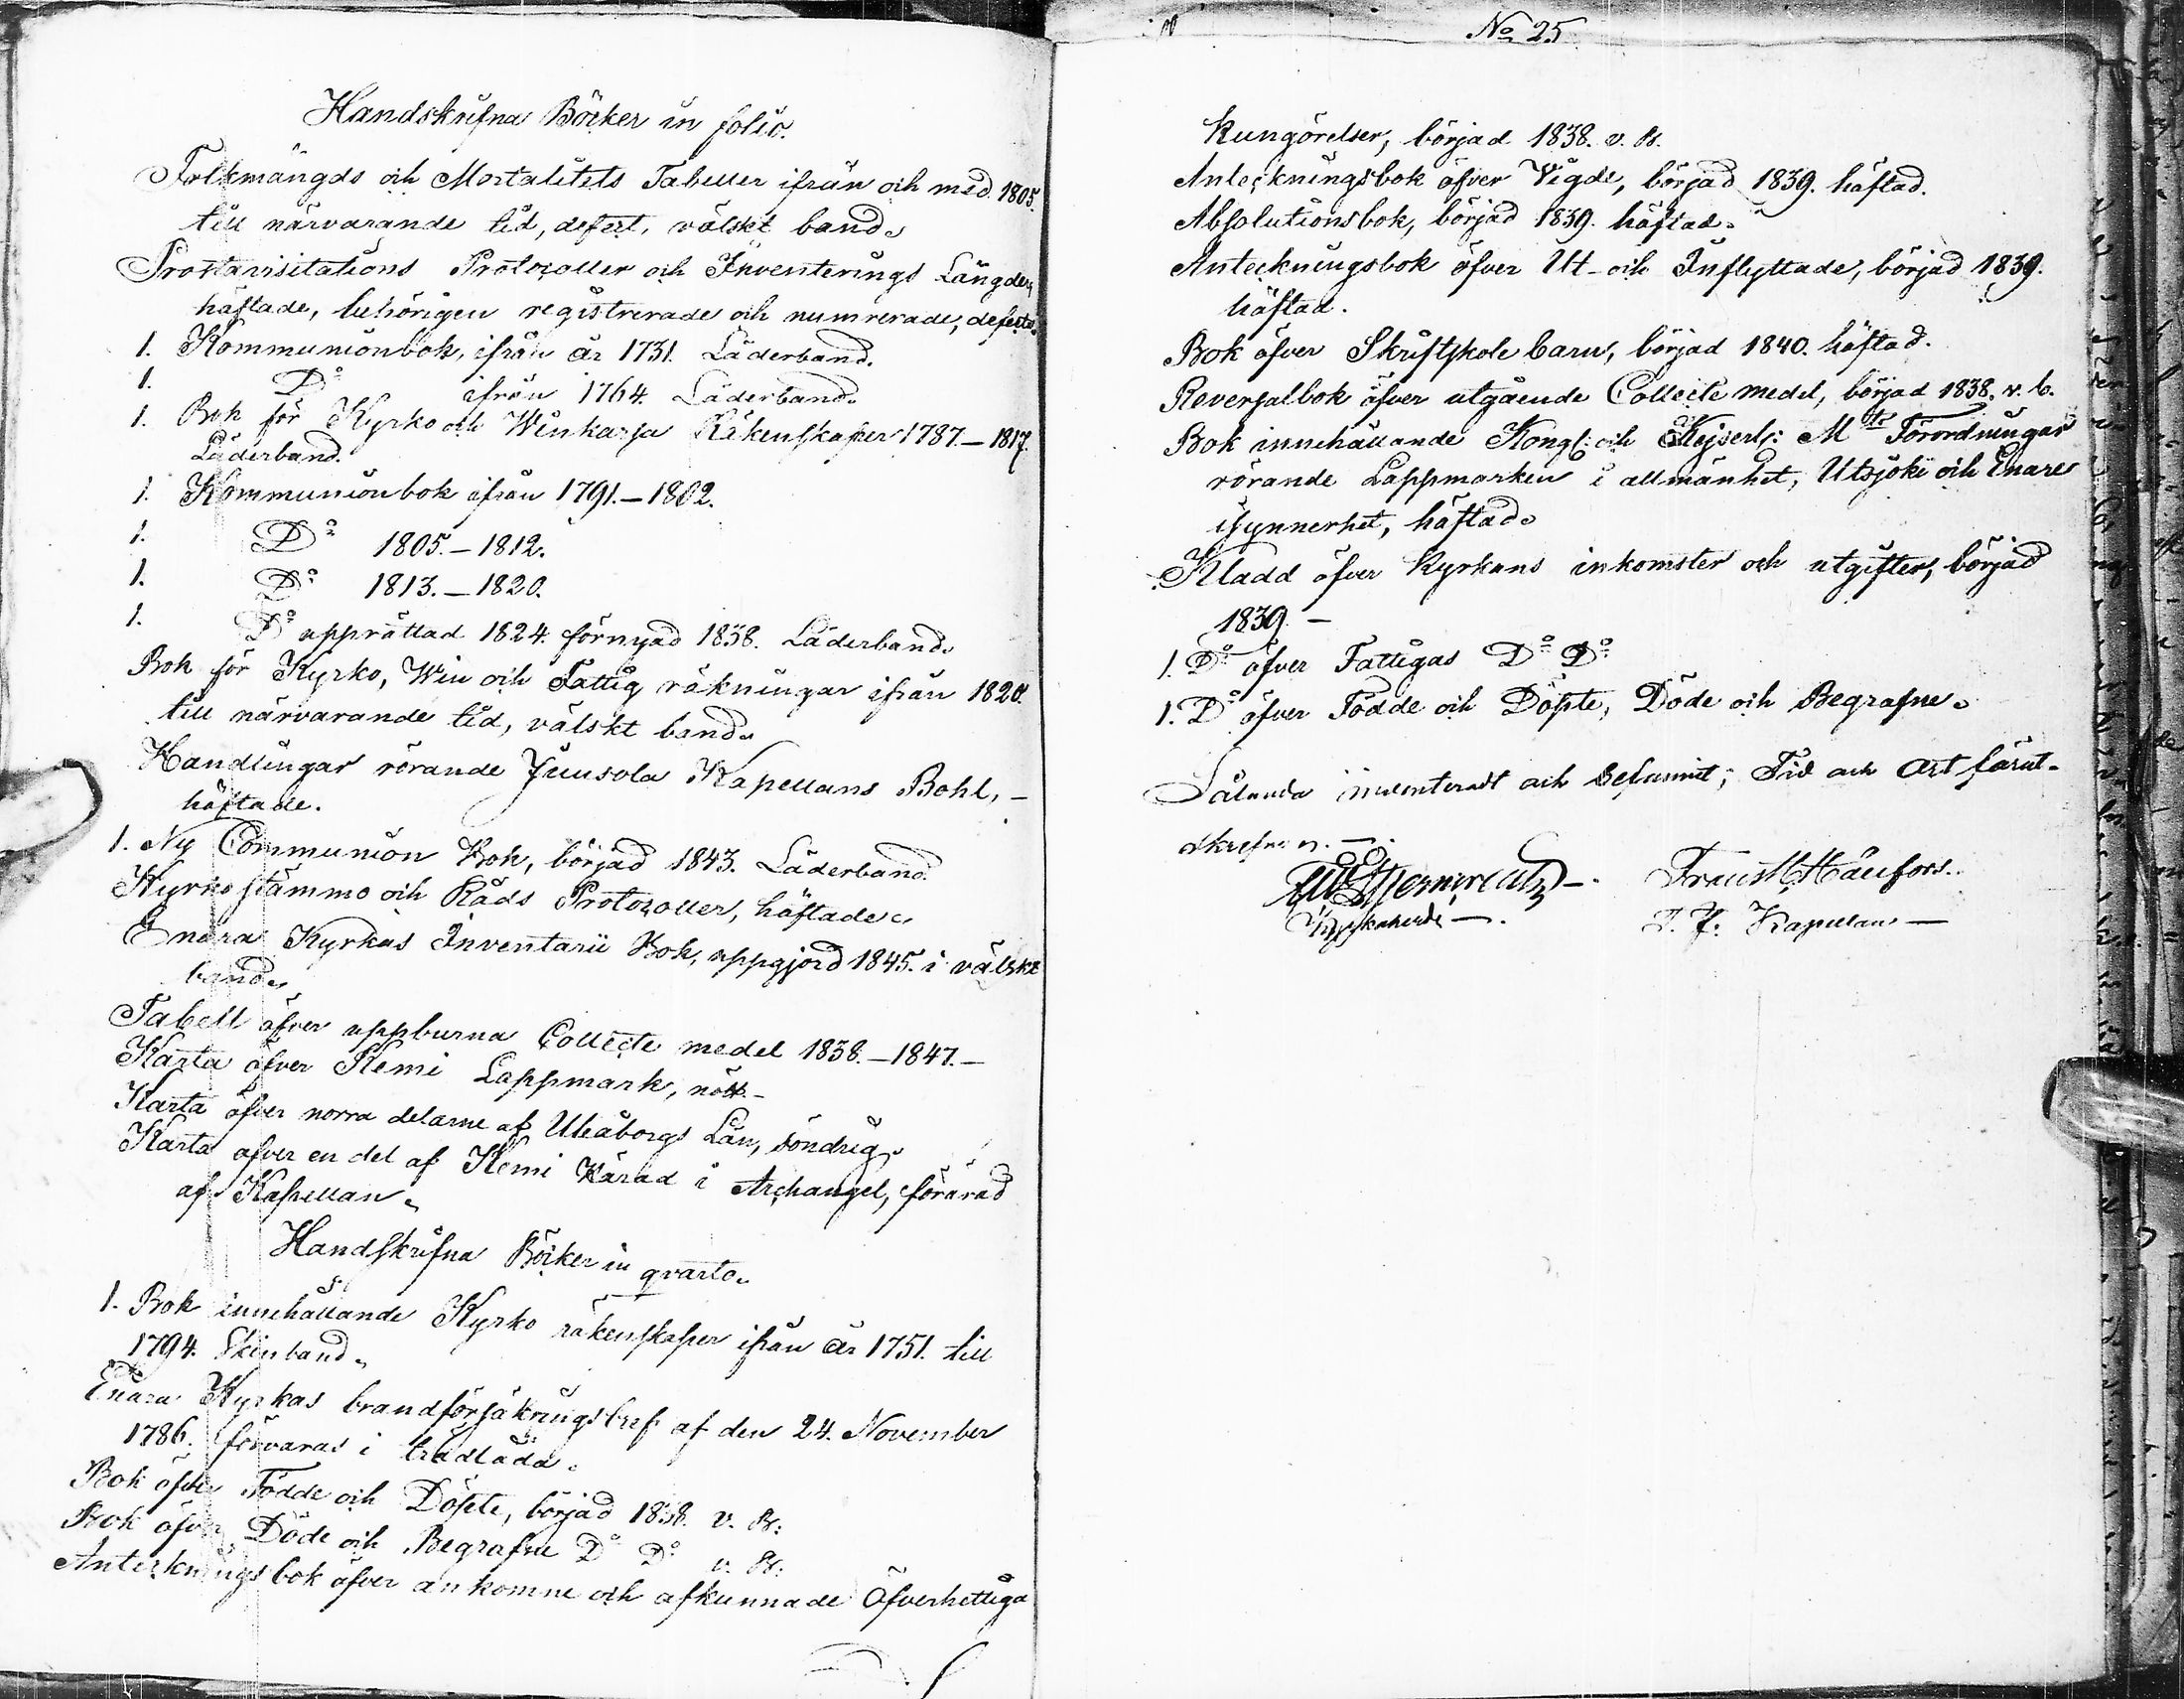 Handskrifna Böcker in folio.
Folkmängds och Mortalitets Tabeller ifrån och med 1805.
till närvarande tid, defect, välskt band.
Prostavisitations Protocoller och Inventerings Längder,
häftade, behörigen registrerade och numrerade, defecta.
1. Kommunionbok, ifrån år 1731. Läderband.
1. Do ifrån 1764. Läderband.
1. Bok för Kyrko och Winkassa Räkenskaper 1787.–1817.
Läderband.
1. Kommunionbok ifrån 1791.–1802.
1. Do 1805.–1812.
1. Do 1813.–1820.
1. Do upprättad 1824. förnyad 1838. Läderband.
Bok för Kyrko, Win och Fattig räkningar ifrån 1820.
till närvarande tid, välskt band.
Handlingar rörande Juusola Kapellans Bohl, –
häftade.
1. Ny Communion Bok, börjad 1843. Läderband.
Kyrkostämmo och Råds Protocoller, häftade.
Enara Kyrkas Inventarii Bok, uppgjord 1845. i välskt
band.
Tabell öfver uppburna Collecte medel 1838.–1847.–
Karta öfver Kemi Lappmark, nött.–
Karta öfver norra delarne af Uleåborgs Län, söndrig.
Karta öfver en del af Kemi Härad i Archangel, förärad
af Kapellan.
Handskrifna Böcker in qvarto.
1. Bok innehållande Kyrko räkenskaper ifrån år 1751. till
1794. Skinband.
Enara Kyrkas brandförsäkringsbref af den 24. November
1786. förvaras i trädlåda.
Bok öfver Födde och Döpte, börjad 1838. v. B:
Bok öfver Döde och Begrafne Do Do v. B:
Anteckningsbok öfver ankomne och afkunnade Öfverhetliga
No 25
Kungörelser, börjad 1838. v. B.
Anteckningsbok öfver Vigde, börjad 1839. häftad.
Absolutionsbok, börjad 1839. häftad.
Anteckningsbok öfver Ut- och Inflyttade, börjad 1839.
häftad.
Bok öfver Skriftskole barn, börjad 1840. häftad.
Reversalbok öfver utgående Collecte medel, börjad 1838. v. b.
Bok innehållande Kongl: och Kejserl: Mts Förordningar
rörande Lappmarken i allmänhet, Utsjoki och Enare
isynnerhet, häftad.
Kladd öfver Kyrkans inkomster och utgifter, börjad
1839. –
1. Do öfver Fattigas Do Do
1. Do öfver Födde och Döpte, Döde och Begrafne.
Sålunda inventeradt och befunnit; Tid och Ort förut-
skrefne. –
Kyrkoherde –. T. f. Kapellan –